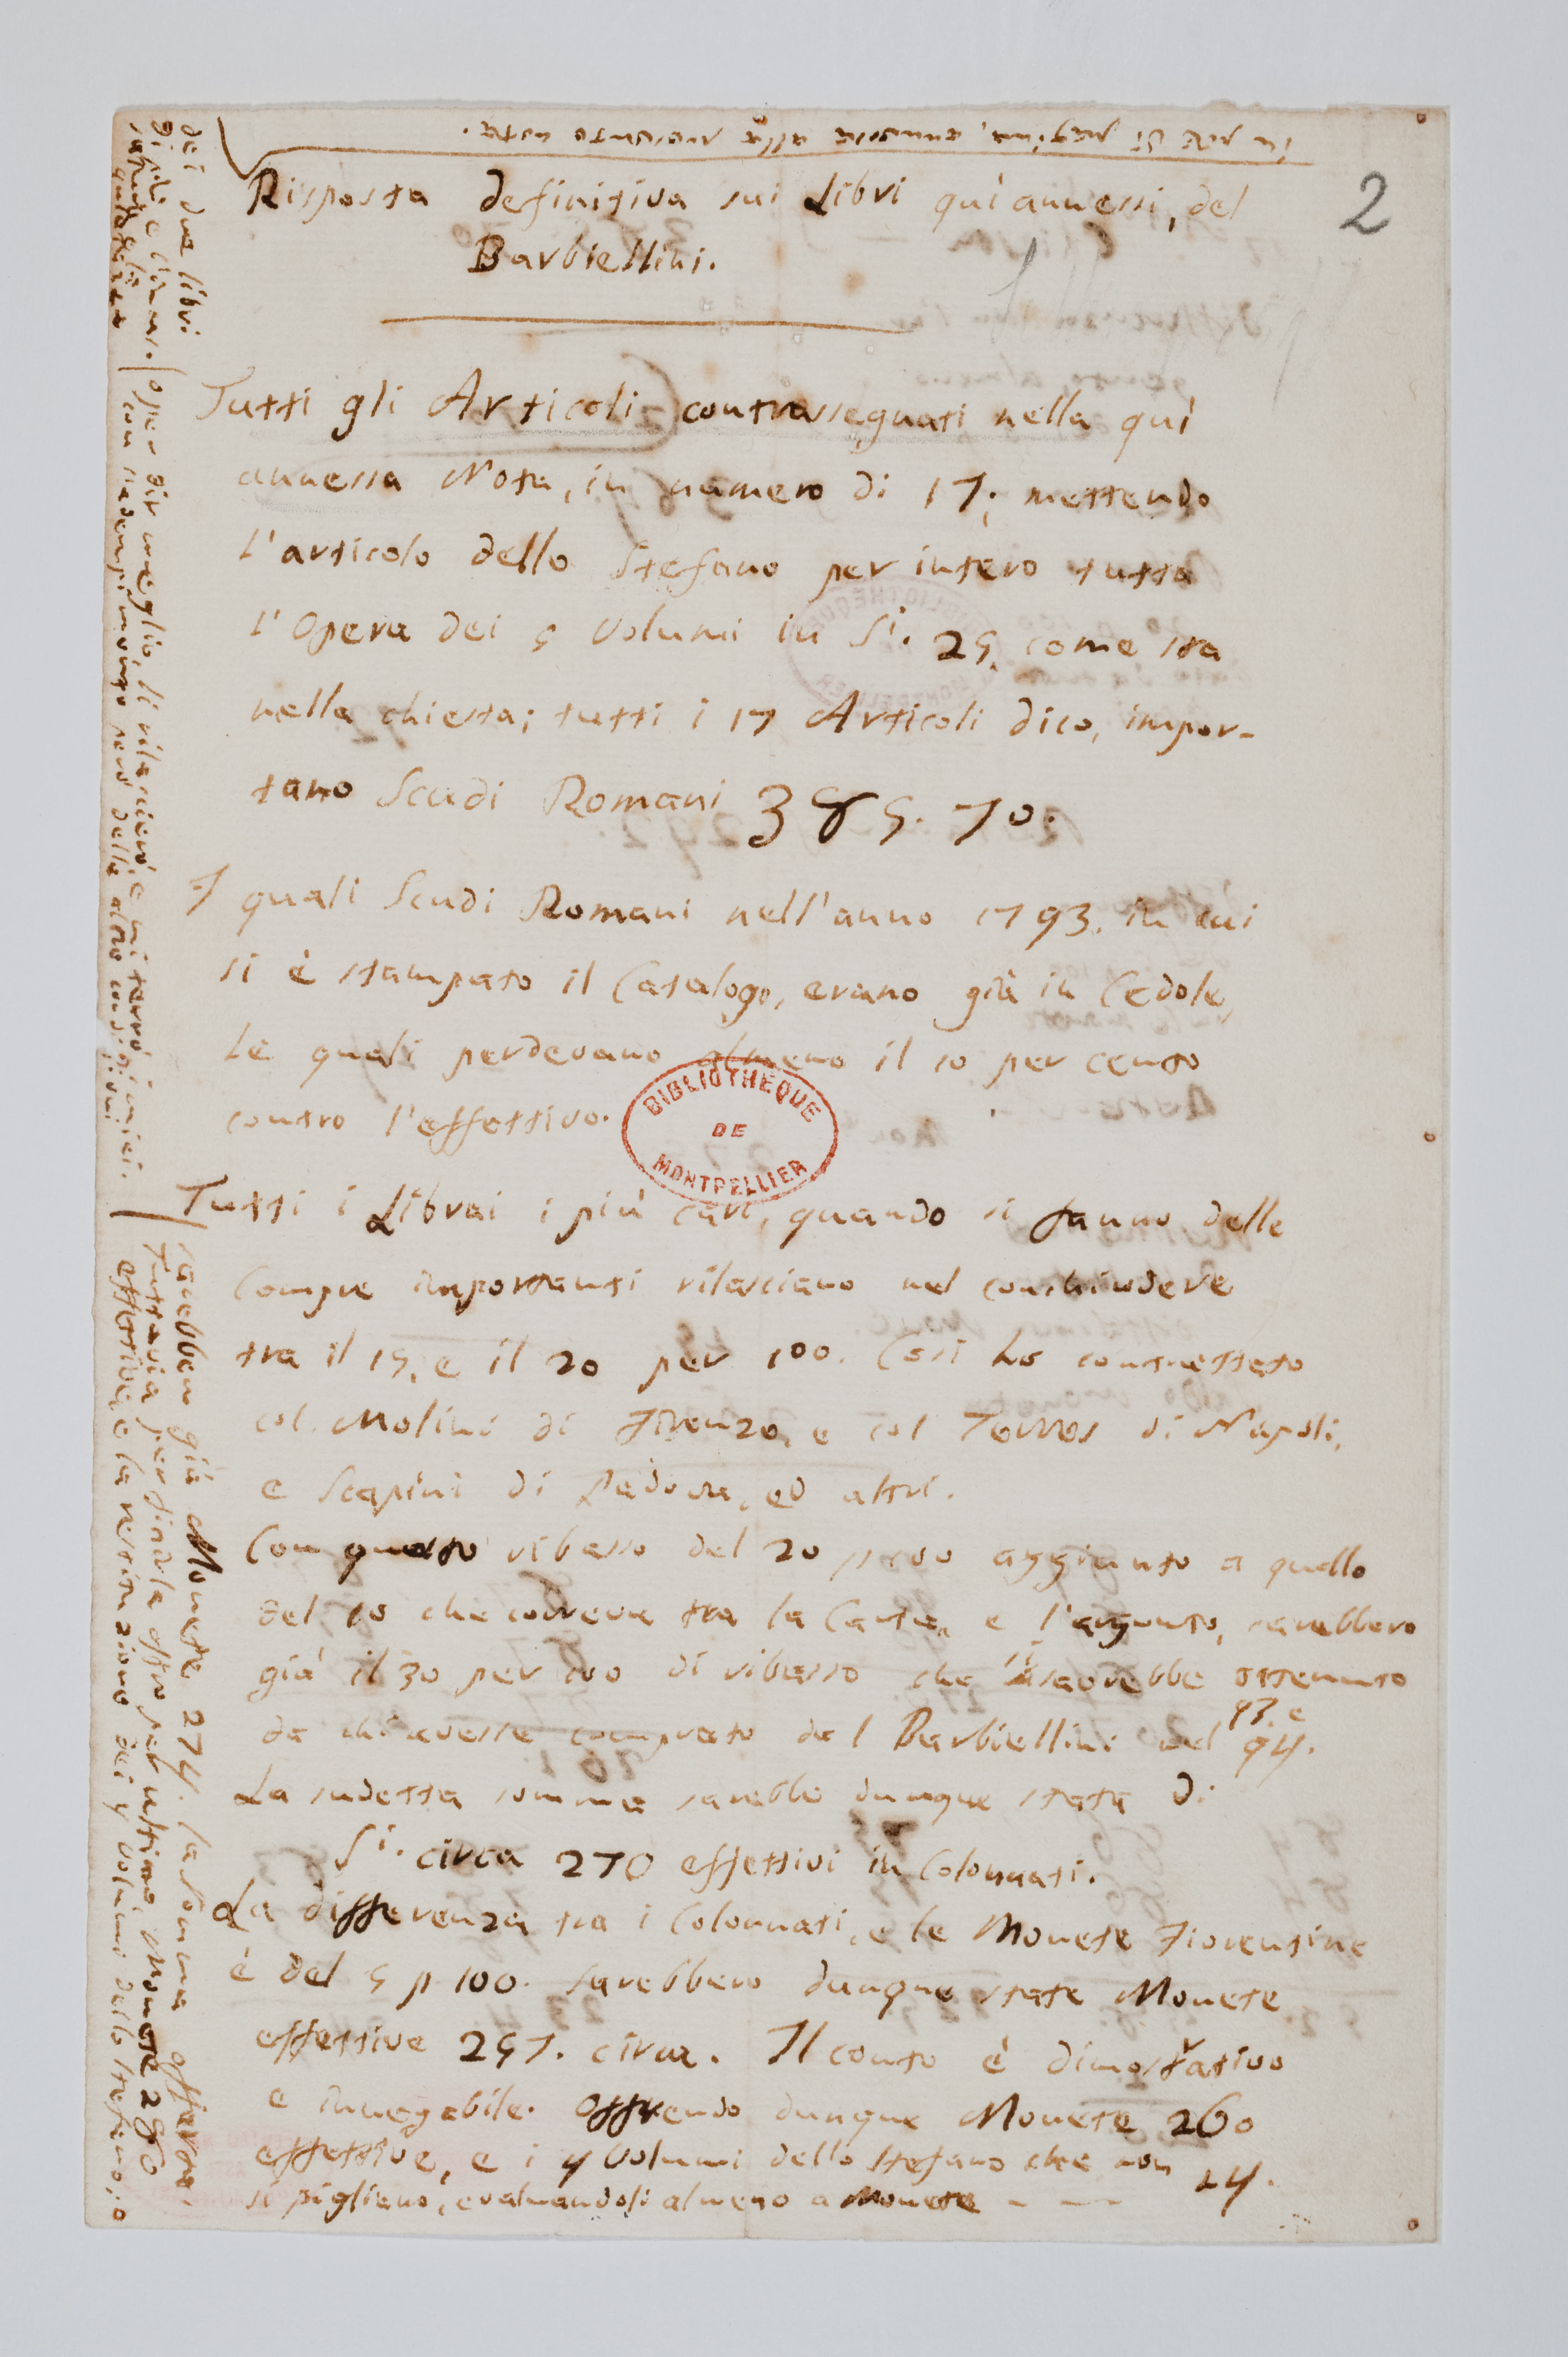 2
Risposta definitiva sui Libri quì annessi, del
Barbiellini.
Tutti gli Articoli contrassegnati nella quì
annessa Nota, in numero di 17; mettendo
l'articolo dello Stefano per intero tutta
l'Opera dei 5 Volumi in Si. 25. come sta
nella chiesta; tutti i 17 Articoli dico, impor-
tano Scudi Romani 385. 70.
I quali Scudi Romani nell'anno 1793. in cui
si è stampato il Catalogo, erano già in Cedole,
Le quali perdevano almeno il 10 per cento
contro l'effettivo.
BIBLIOTHEQUE
DE
MONTPELLIER
Tutti i Librai i più cari, quando si fanno delle
Compre importanti rilasciano nel conchiudere
tra il 15. e il 20 per 100. Così ho contrattato
col Molini di Firenze, e col Torres di Napoli,
e Scapini di Padova, ed altri.
Con questo ribasso del 20 p 100 aggiunto a quello
del 10 che correva tra la Carta, e l'argento, sarebbero
già il 30 per 100 di ribasso che si sarebbe ottenuto
da chi avesse comprato dal Barbiellini nel 93. e 94.
La sudetta somma sarebbe dunque stata di
Si. circa 270 effettivi in Colonnati.
La differenza tra i Colonnati, e le Monete Fiorentine
è del 5 p 100. Sarebbero dunque state Monete
effettive 257. circa. Il conto è dimostrativo
e innegabile. Offrendo dunque Monete 260
effettive, e i 4 Volumi dello Stefano che non
si pigliano, evaluandoli almeno a Monete - - 14.
sarebben già Monete 274. la somma offerta.
Tuttavia per finirla offro per ultimo, Monete 280
effettive e la restituzione dei 4 Volumi dello Stefano; o
o per dir meglio, li rilascierò e mi terrò i miei.
con riadempimento però delle altre condizioni
dei due libri
di più e
in vece di Regina, annessa alla mediante nota.